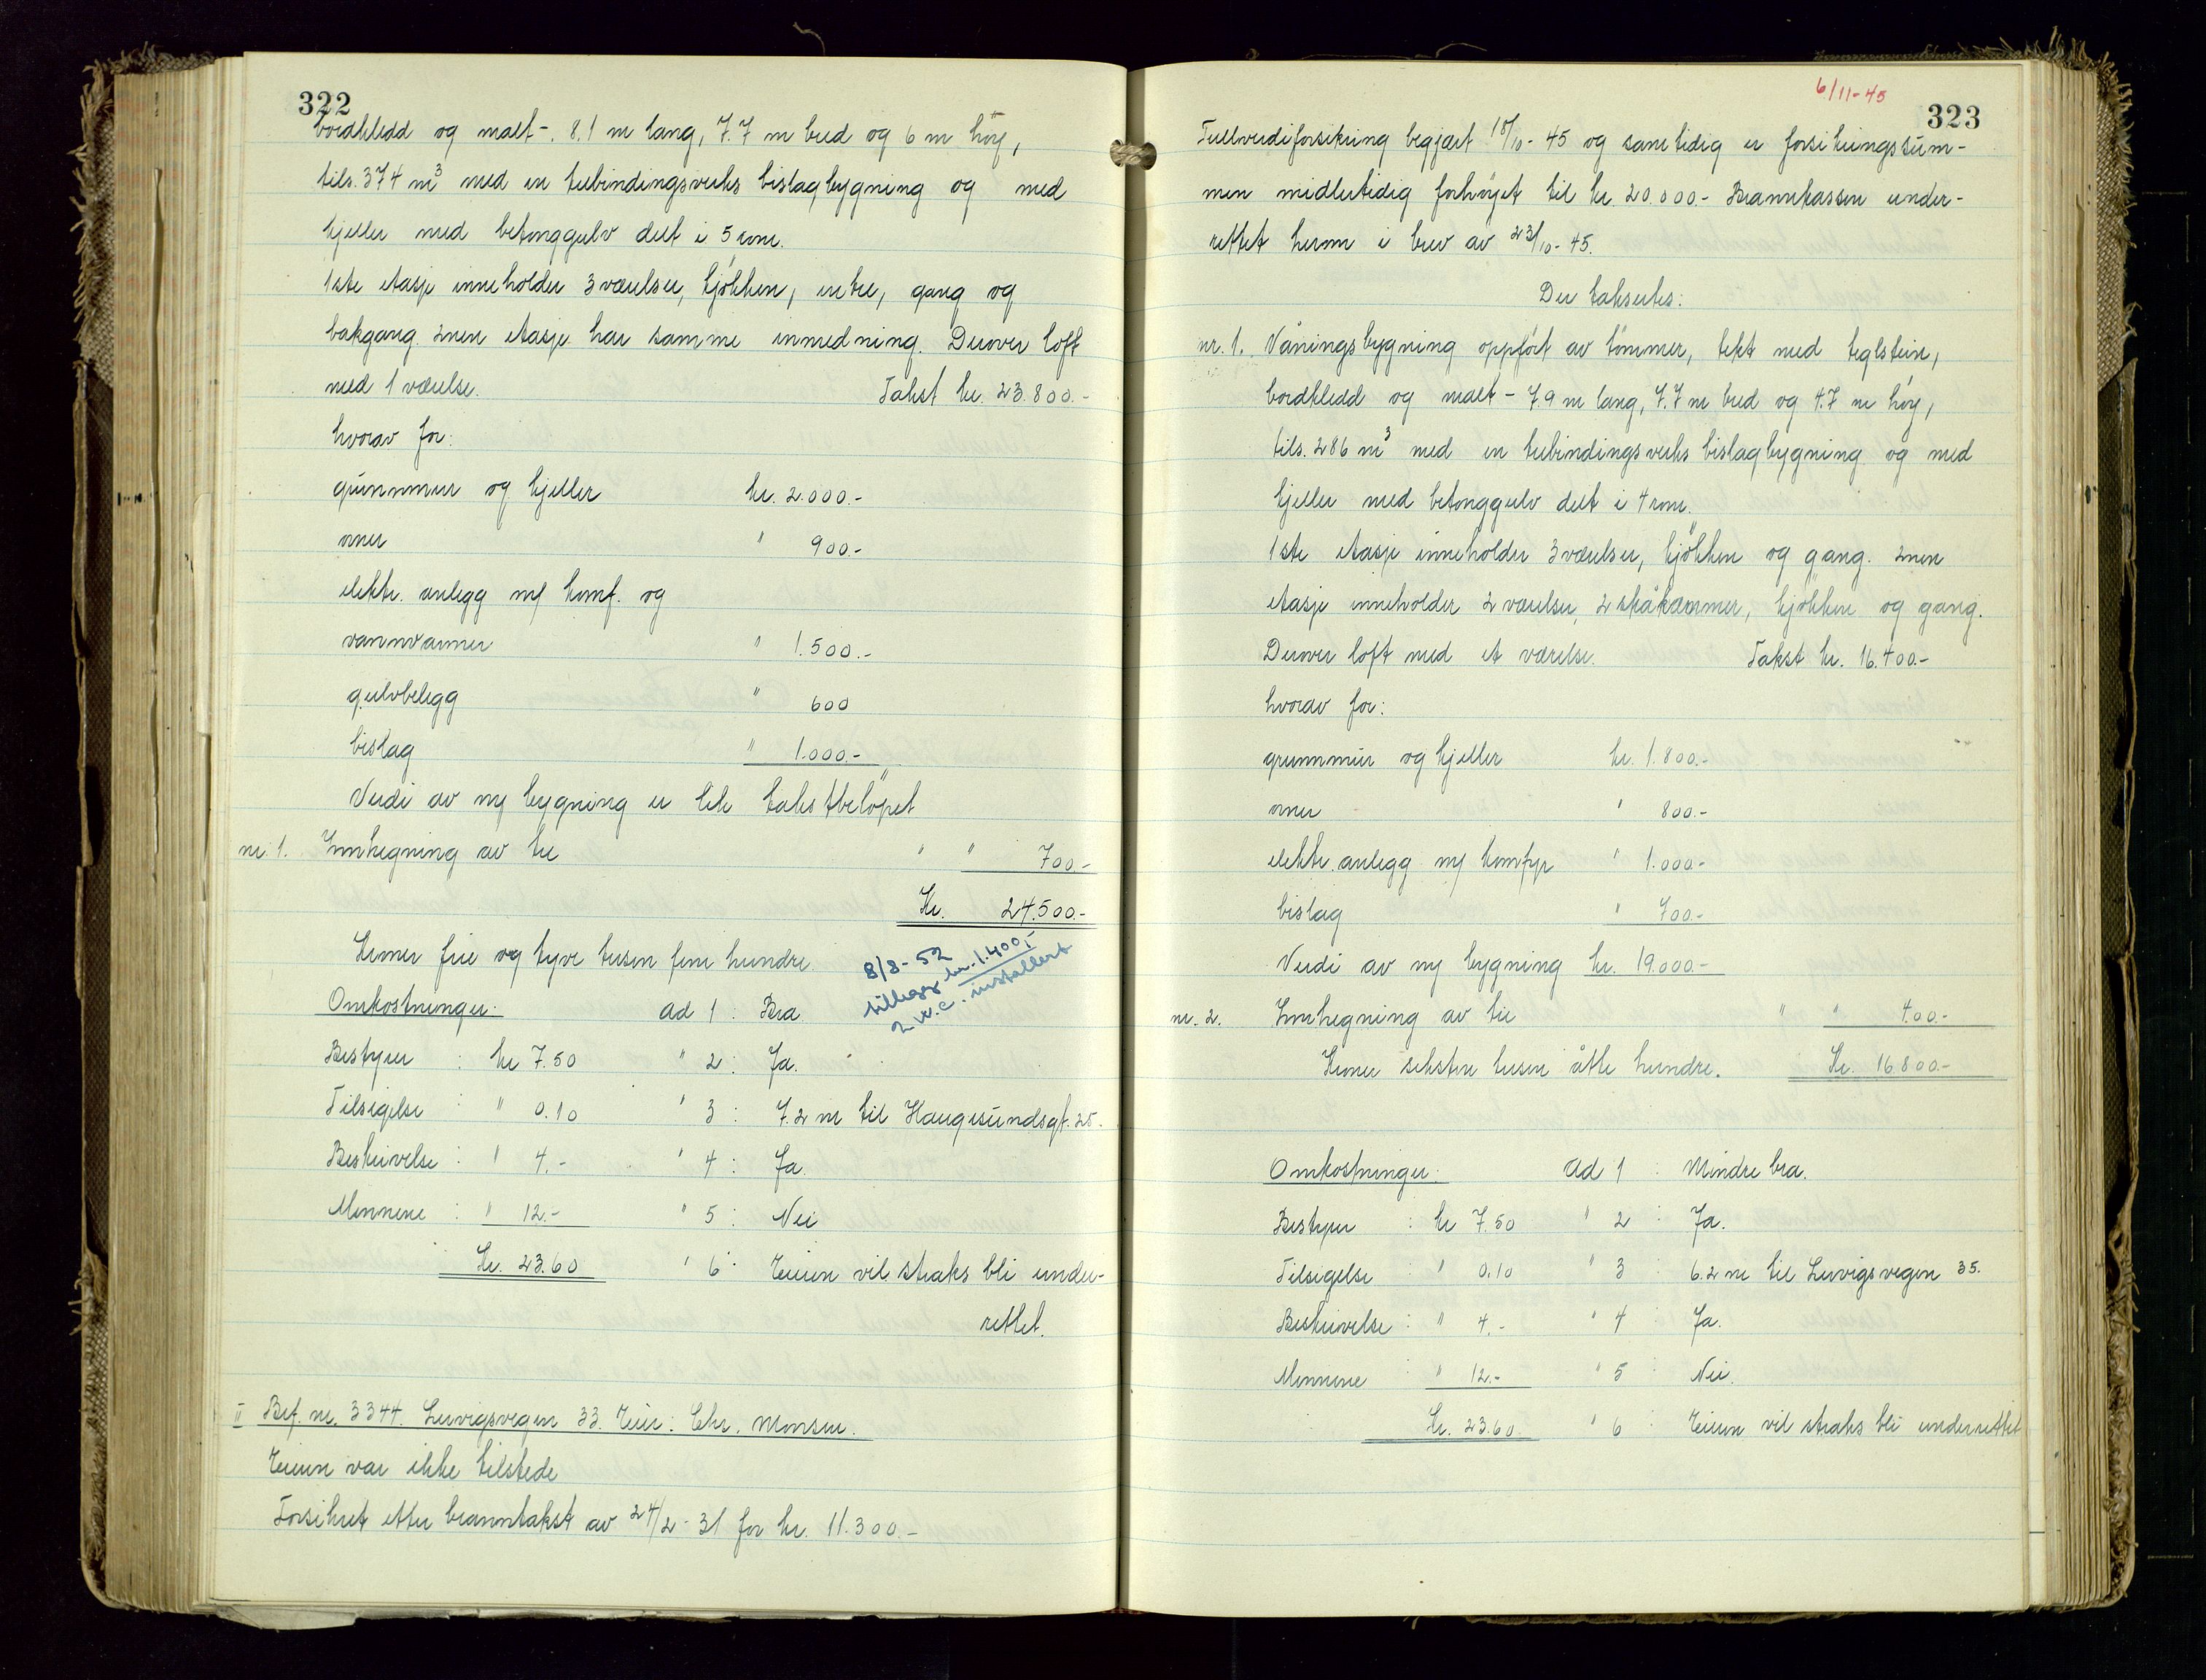 322
bordkledd og malt -. 8.1 m lang, 7.7 m bred og 6 m høy,
tils. 374 m³ med en trebindingsverks bislagbygning og med
kjeller med betonggulv delt i 5 rom.
1ste etasje inneholder 3 værelser, kjøkken, entre, gang og
bakgang. 2nen etasje har samme innredning. Derover loft
med 1 værelse. Takst kr. 23.800.-
hvorav for:
grunnmur og kjeller kr. 2.000.-
ovner " 900.-
elektr. anlegg m/ komf. og
vannvarmer " 1.500.-
gulvbelegg " 600
bislag " 1.000.-
Verdi av ny bygning er lik takstbeløpet
nr. 1. Innhegning av tre " " 700.-
Kr. 24.500.-
Kroner fire og tyve tusen fem hundre.
8/8-52
tillegg kr. 1.400,-
2 W.C. installert
Omkostninger: ad 1 : Bra
Bestyrer : kr 7.50 " 2 : Ja.
Tilsigelse : " 0.10 " 3 : 7.2 m til Haugesundsgt. 25.
Beskrivelse : " 4.- " 4 : Ja.
Mennene : " 12.- " 5 : Nei
Kr. 23.60 " 6 : Eieren vil straks bli under-
rettet.
II Brf. nr. 3344. Lervigsvegen 33. Eier: Chr. Monsen.
Eieren var ikke tilstede
Forsikret etter branntakst av 24/2-31 for kr. 11.300.-
6/11-45
323
Fullverdiforsikring begjært 18/10-45 og samtidig er forsikringssum-
men midlertidig forhøyet til kr. 20.000.- Brannkassen under-
rettet herom i brev av 23/10-45.
Der takseres:
nr. 1. Våningsbygning oppført av tømmer, tekt med teglstein,
bordkledd og malt - 7.9 m lang, 7.7 m bred og 4.7 m høy,
tils. 286 m³ med en trebindingsverks bislagbygning og med
kjeller med betonggulv delt i 4 rom.
1ste etasje inneholder 3 værelser, kjøkken og gang. 2nen
etasje inneholder 2 værelser, 2 skråkammer, kjøkken og gang.
Derover loft med et værelse. Takst kr. 16.400.-
hvorav for:
grunnmur og kjeller kr. 1.800.-
ovner " 800.-
elektr. anlegg m/ komfyr " 1.000.-
bislag " 700.-
Verdi av ny bygning kr. 19.000.-
nr. 2. Innhegning av tre " " 400.-
Kroner seksten tusen åtte hundre. Kr. 16.800.-
Omkostninger: ad 1 : Mindre bra.
Bestyrer : kr 7.50 " 2 : Ja.
Tilsigelse : " 0.10 " 3 : 6.2 m til Lervigsvegen 35.
Beskrivelse : " 4.- " 4 : Ja.
Mennene : " 12.- " 5 : Nei.
Kr. 23.60 " 6 : Eieren vil straks bli underrettet